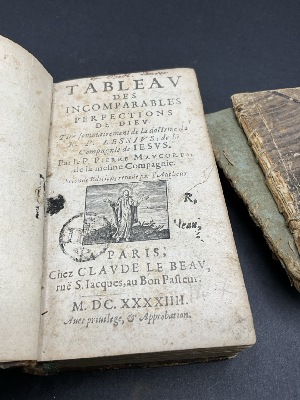 TABLEAV
DES
INCOMPARABLES
PERFECTIONS
DE DIEV
Tiré sommairement de la doctrine du
R. P. LESSIVS, de la
Compagnie de IESVS.
Par le P. PIERRE
de la mesme Compagnie.
R,
leau,
A PARIS,
Chez CLAVDE LE BEAV,
ruë S. Iacques, au Bon Pasteur.
M. DC. XXXXIIII.
Auec priuilege, & Approbation.